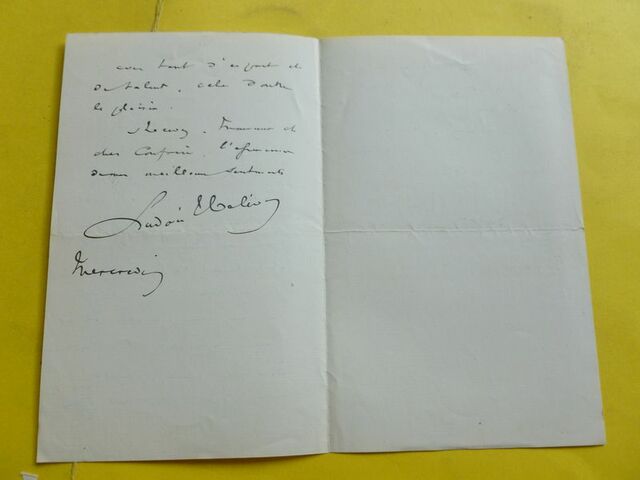 avec tant d'esprit et
de talent, cela double
le plaisir.
Recevez, Monsieur et
cher Confrère, l'expression
de mes meilleurs sentiments
Ludovic Halévy
Mercredi